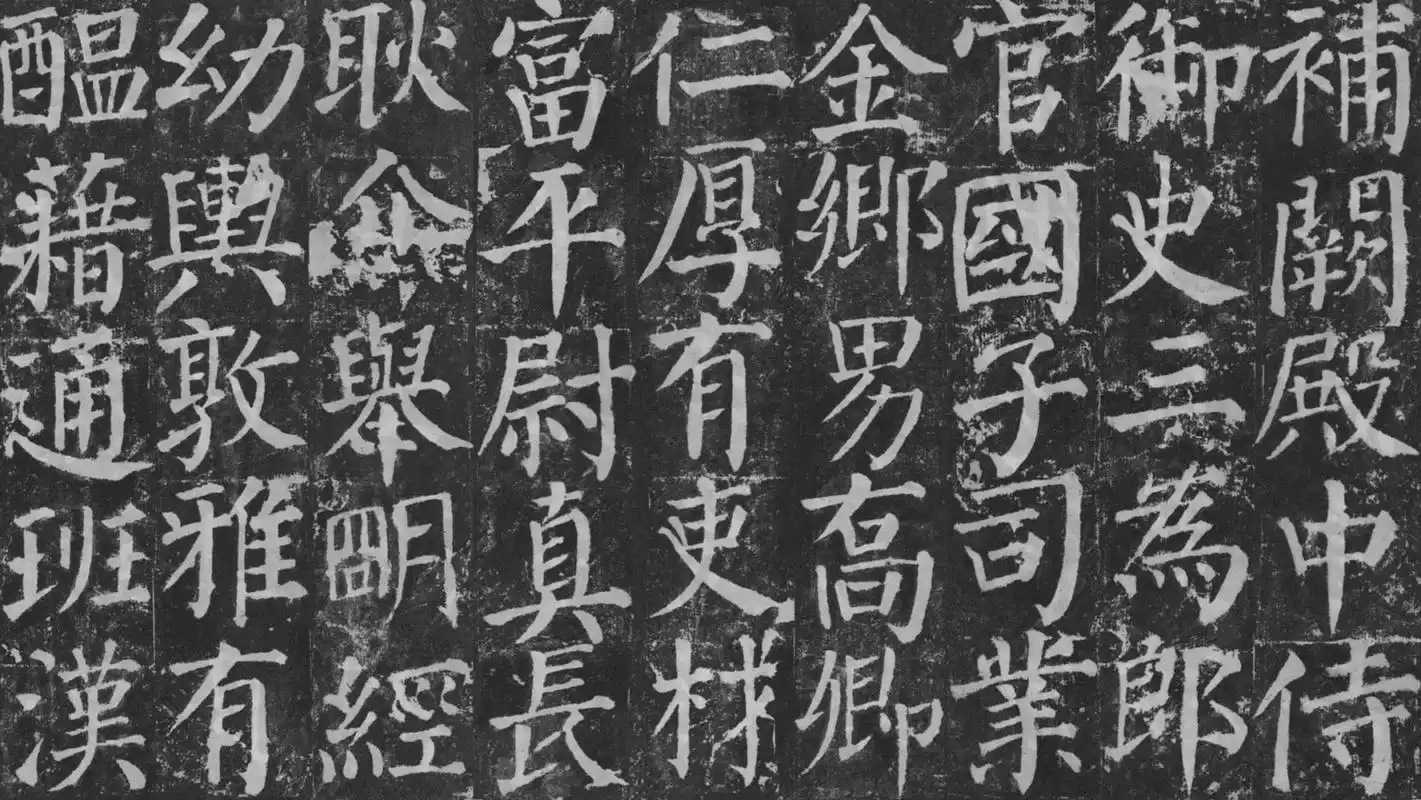 補闕殿中侍
御史三為郎
官國子司業
金鄉男高卿
仁厚有吏材
富平尉真長
耿介舉明經
幼輿敦雅有
醞藉通班漢